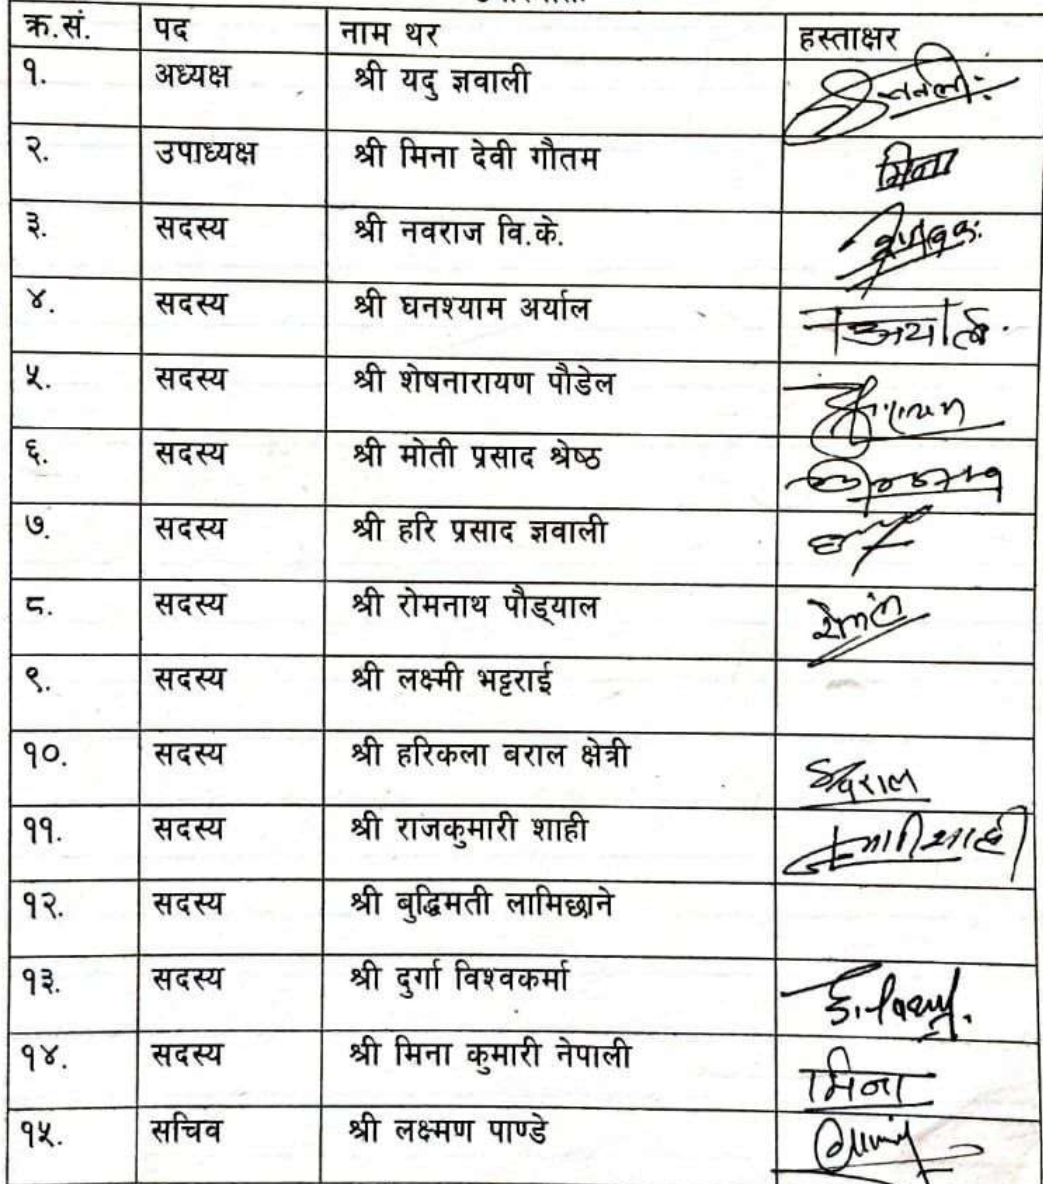 क्र.सं. पद नाम थर हस्ताक्षर
१. अध्यक्ष श्री यदु ज्ञवाली
२. उपाध्यक्ष श्री मिना देवी गौतम मिना
३. सदस्य श्री नवराज वि.के.
४. सदस्य श्री घनश्याम अर्याल अर्याल
५. सदस्य श्री शेषनारायण पौडेल
६. सदस्य श्री मोती प्रसाद श्रेष्ठ
७. सदस्य श्री हरि प्रसाद ज्ञवाली
८. सदस्य श्री रोमनाथ पौड्याल
९. सदस्य श्री लक्ष्मी भट्टराई
१०. सदस्य श्री हरिकला बराल क्षेत्री
११. सदस्य श्री राजकुमारी शाही
१२. सदस्य श्री बुद्धिमती लामिछाने
१३. सदस्य श्री दुर्गा विश्वकर्मा
१४. सदस्य श्री मिना कुमारी नेपाली मिना
१५. सचिव श्री लक्ष्मण पाण्डे